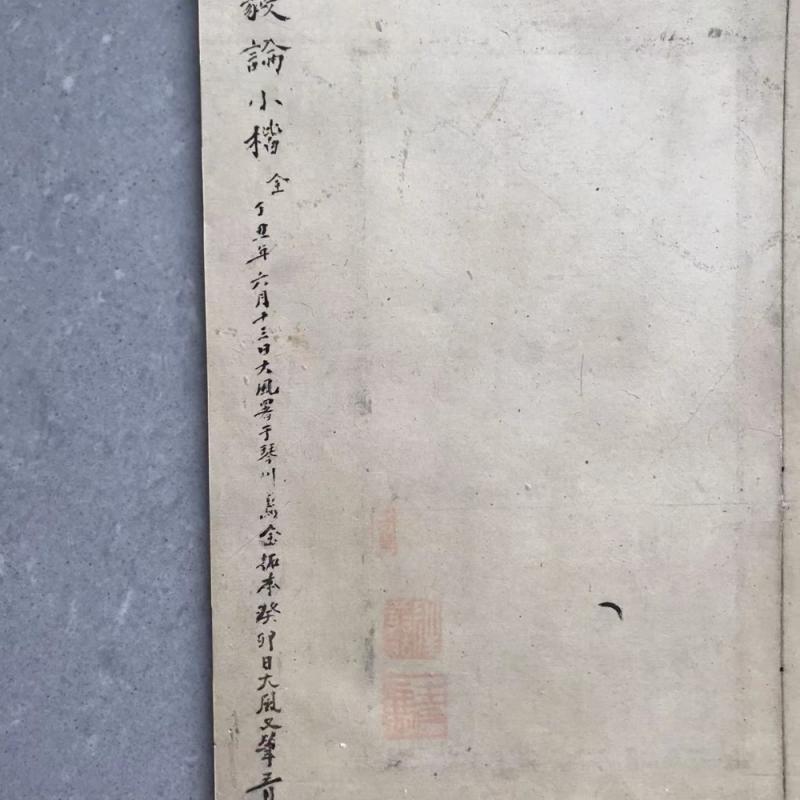 毅論小楷全
丁丑年六月十三日大風署于琴川烏金拓本癸卯日大風又筆